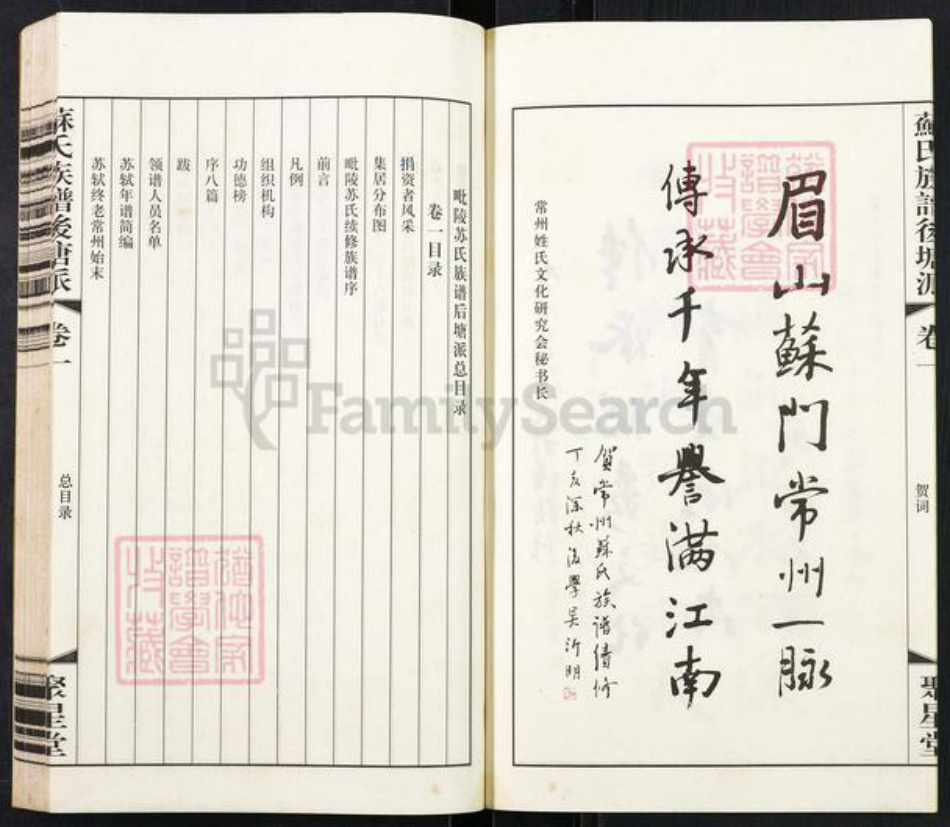 蘇氏族譜後塘派
卷一
贺词
聚星堂
眉山蘇門常州一脉
傳承千年譽满江南
賀常州蘇氏族譜續修
丁亥深秋後學吴沂明
常州姓氏文化研究会秘书长
毗陵苏氏族谱后塘派总目录
卷一目录
捐资者风采
集居分布图
毗陵苏氏续修族谱序
前言
凡例
组织机构
功德榜
序八篇
跋
领谱人员名单
苏轼年谱简编
苏轼终老常州始末
蘇氏族譜後塘派
卷一
总目录
聚星堂
FamilySearch